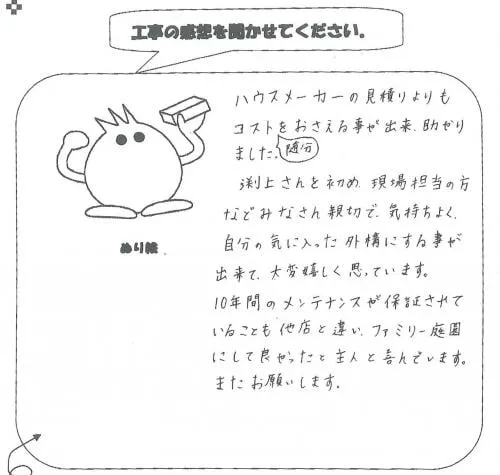 工事の感想を聞かせてください。
ハウスメーカーの見積りよりも
コストをおさえる事が出来、助かり
ました。随分
渕上さんを初め、現場担当の方
などみなさん親切で、気持ちよく、
自分の気に入った外構にする事が
出来て、大変嬉しく思っています。
10年間のメンテナンスが保証されて
いることも他店と違い、ファミリー庭園
にして良かったと主人と喜んでいます。
またお願いします。
ぬり絵